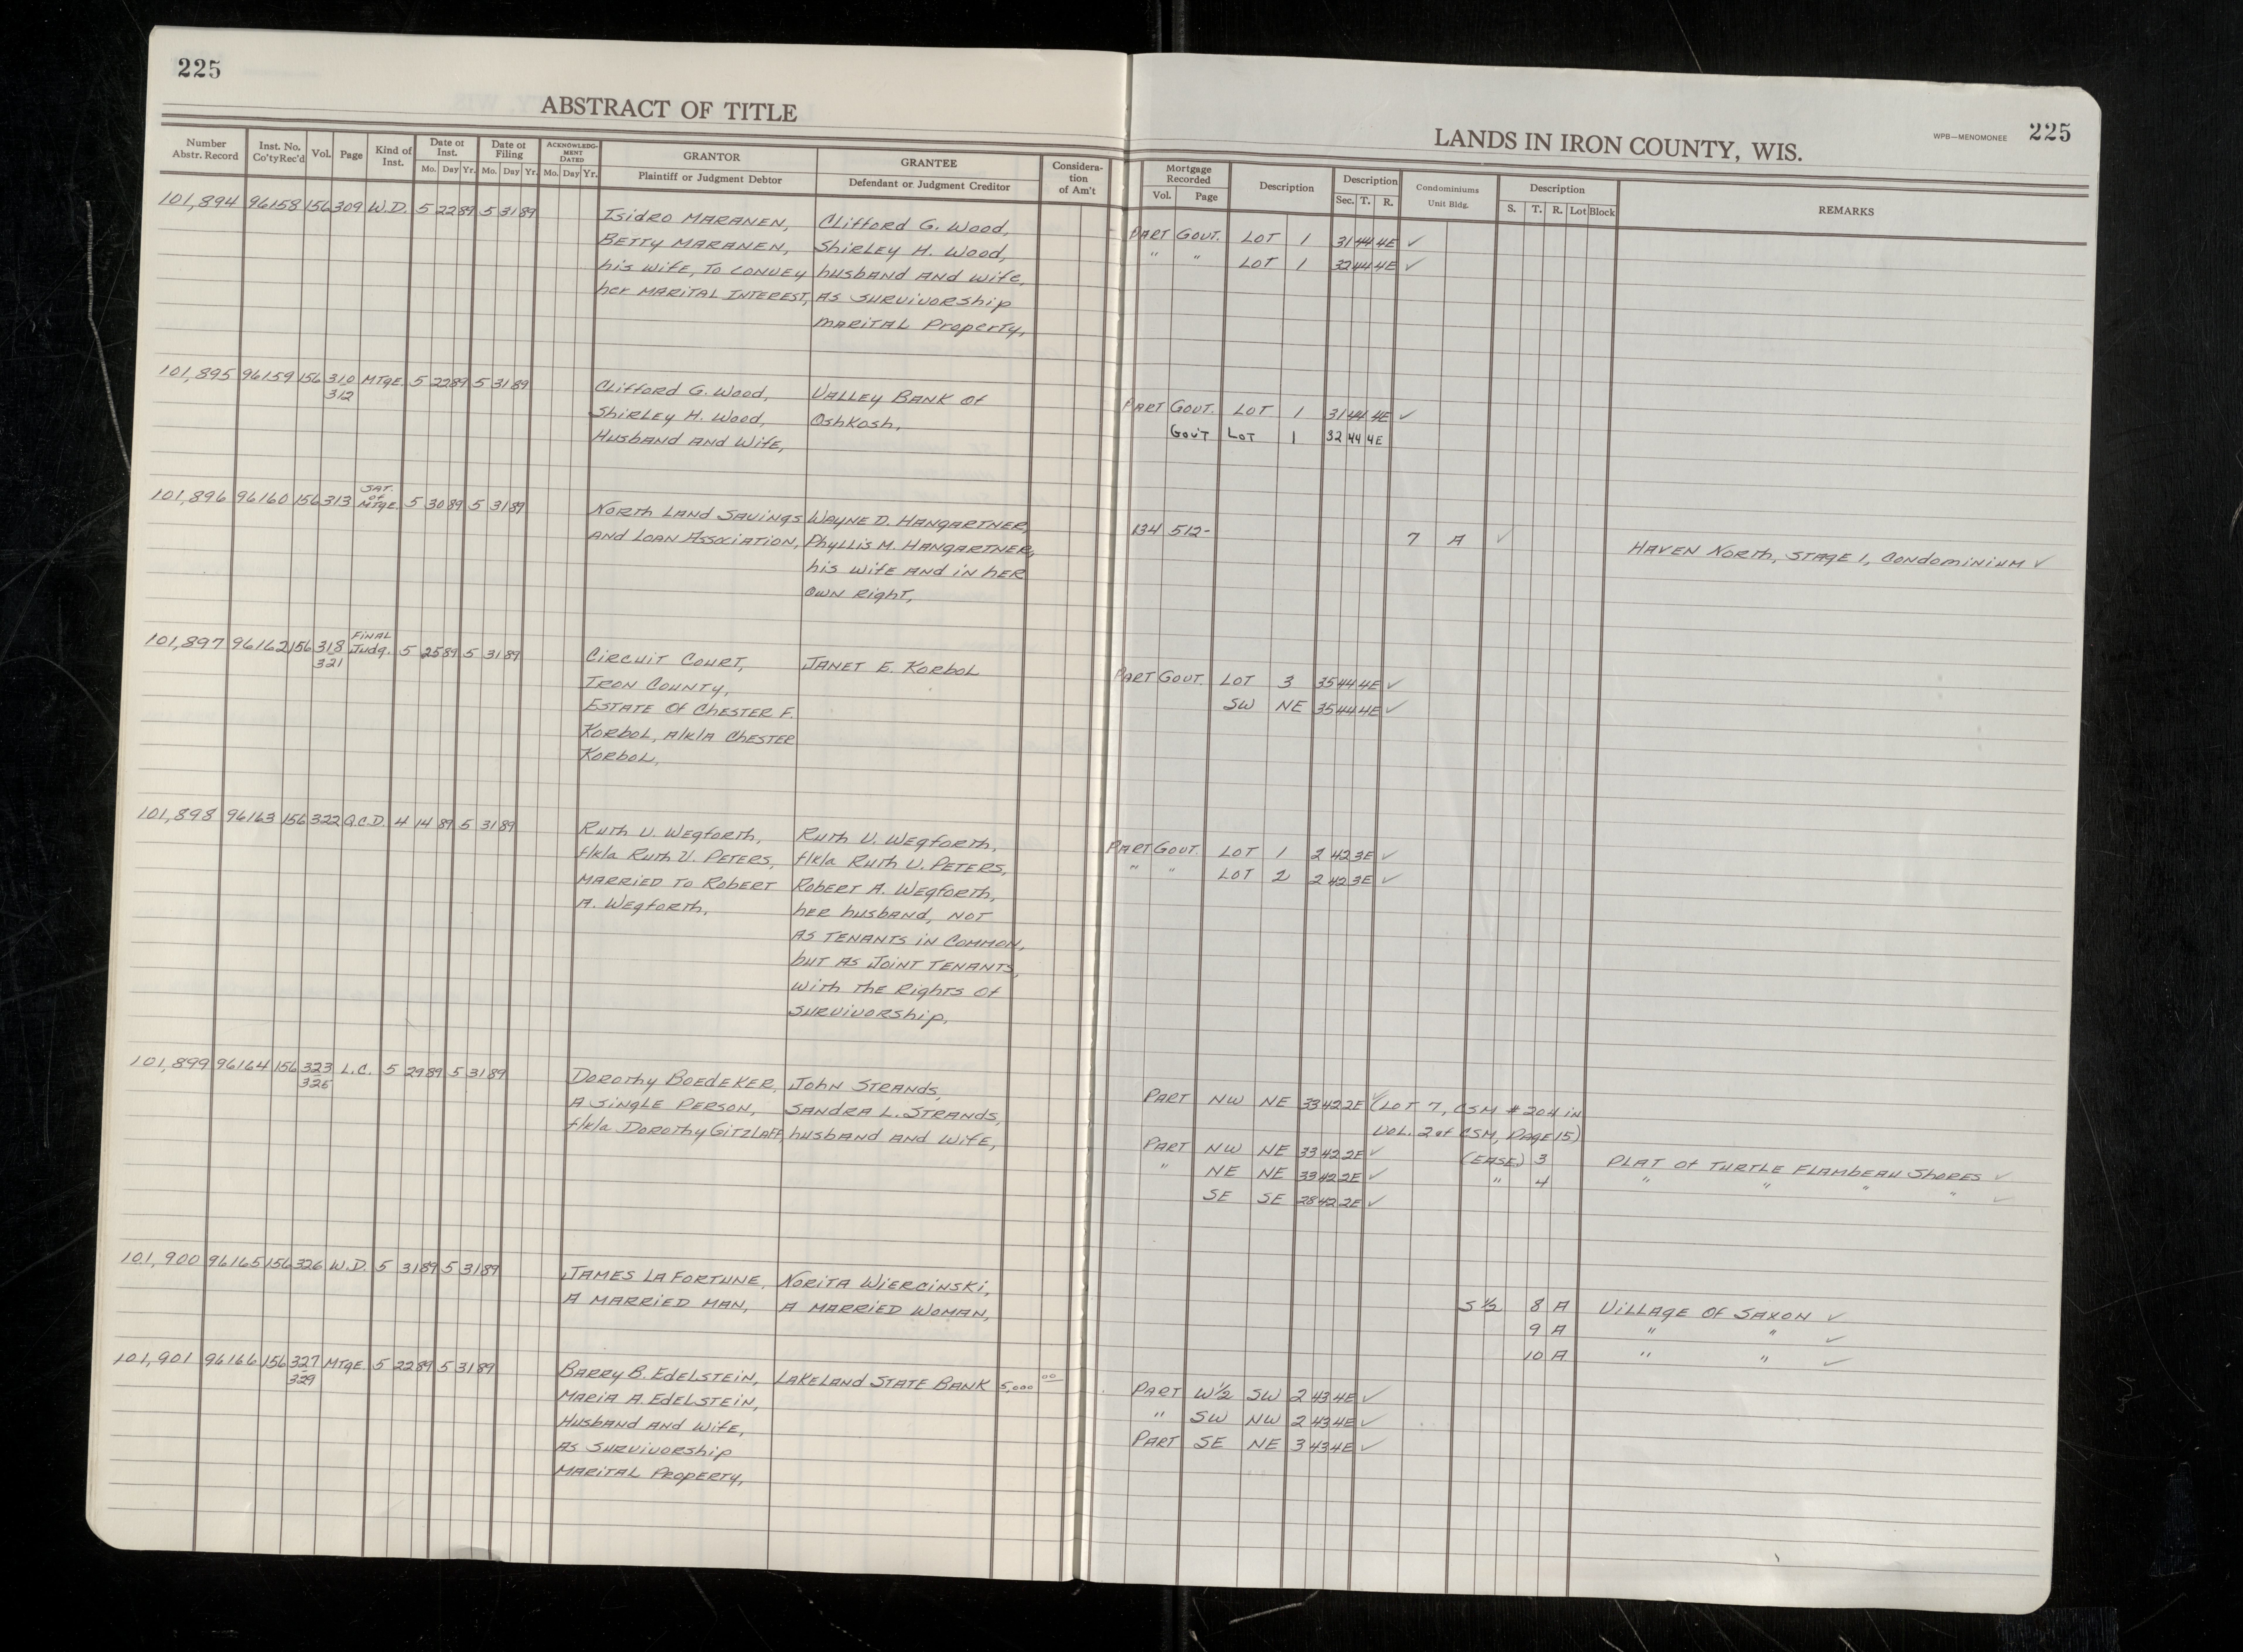 225
ABSTRACT OF TITLE
Number Abstr. Record
Inst. No. Co'ty Rec'd
Vol.
Page
Kind of Inst.
Date of Inst.
Mo. Day Yr.
Date of Filing
Mo. Day Yr.
ACKNOWLEDGMENT DATED
Mo. Day Yr.
GRANTOR
Plaintiff or Judgment Debtor
GRANTEE
Defendant or Judgment Creditor
Consideration of Am't
101,894 96158 156 309 W.D. 5 22 89 5 31 89
Isidro MARANEN, Clifford G. Wood,
BETTY MARANEN, Shirley H. Wood,
his wife, To CONVEY husband AND wife,
her MARITAL INTEREST, AS SURVIVORShip
MARITAL Property,
101,895 96159 156 310 MTgE. 5 22 89 5 31 89
312
Clifford G. Wood, VALLEY BANK Of
Shirley H. Wood, Oshkosh,
Husband AND Wife,
101,896 96160 156 313 SAT. of MTgE. 5 30 89 5 31 89
North LAND SAVINGS WAYNE D. HANGARTNER,
AND LOAN ASSOCIATION, Phyllis M. HANGARTNER,
his wife AND in hER
OWN Right,
101,897 96162 156 318 FINAL Judg. 5 25 89 5 31 89
321
Circuit Court, JANET E. Korbol
IRON COUNTY,
ESTATE Of CHESTER F.
Korbol, A/k/A CHESTER
Korbol,
101,898 96163 156 322 Q.C.D. 4 14 89 5 31 89
Ruth V. Wegforth, Ruth V. Wegforth,
f/k/a Ruth V. PETERS, f/k/a Ruth V. PETERS,
MARRIED To Robert Robert A. Wegforth,
A. Wegforth, her husband, NOT
AS TENANTS IN COMMON,
but AS JOINT TENANTS,
with THE Rights Of
SURVIVORShip,
101,899 96164 156 323 L.C. 5 29 89 5 31 89
325
Dorothy BOEDEKER, John STRANDS,
A SINGLE PERSON, SANDRA L. STRANDS,
f/k/a Dorothy GITZLAFF, husband AND Wife,
101,900 96165 156 326 W.D. 5 31 89 5 31 89
JAMES LA FORTUNE, NORITA WIERCINSKI,
A MARRIED MAN, A MARRIED WOMAN,
101,901 96166 156 327 MTgE. 5 22 89 5 31 89
329
BARRY B. EdelSTEIN, LAKELAND STATE BANK 5,000 00
MARIA A. EdelSTEIN,
Husband AND Wife,
AS SURVIVORShip
MARITAL Property,
LANDS IN IRON COUNTY, WIS.
WPB—MENOMONEE
225
Mortgage Recorded
Vol. Page
Description
Description
Sec. T. R.
Condominiums
Unit Bldg.
Description
S. T. R. Lot Block
REMARKS
PART GOVT. LOT 1 31 44 4E ✓
" " LOT 1 32 44 4E ✓
PART GOVT. LOT 1 31 44 4E ✓
Gov'T LoT 1 32 44 4E
134 512- 7 A ✓ HAVEN North, STAGE 1, Condominium ✓
PART GOVT. LOT 3 35 44 4E ✓
SW NE 35 44 4E ✓
PART GOVT. LOT 1 2 42 3E ✓
" " LOT 2 2 42 3E ✓
PART NW NE 33 42 2E ✓ (LOT 7, CSM # 204 in
VOL. 2 of CSM, PAGE 15)
PART NW NE 33 42 2E ✓ (EASE.) 3 PLAT Of TURTLE FLAMBEAU ShORES ✓
" NE NE 33 42 2E ✓ " 4 " " " " ✓
SE SE 28 42 2E ✓
S 1/2 8 A VILLAGE OF SAXON ✓
9 A " " ✓
10 A " " ✓
PART W1/2 SW 2 43 4E ✓
" SW NW 2 43 4E ✓
PART SE NE 3 43 4E ✓